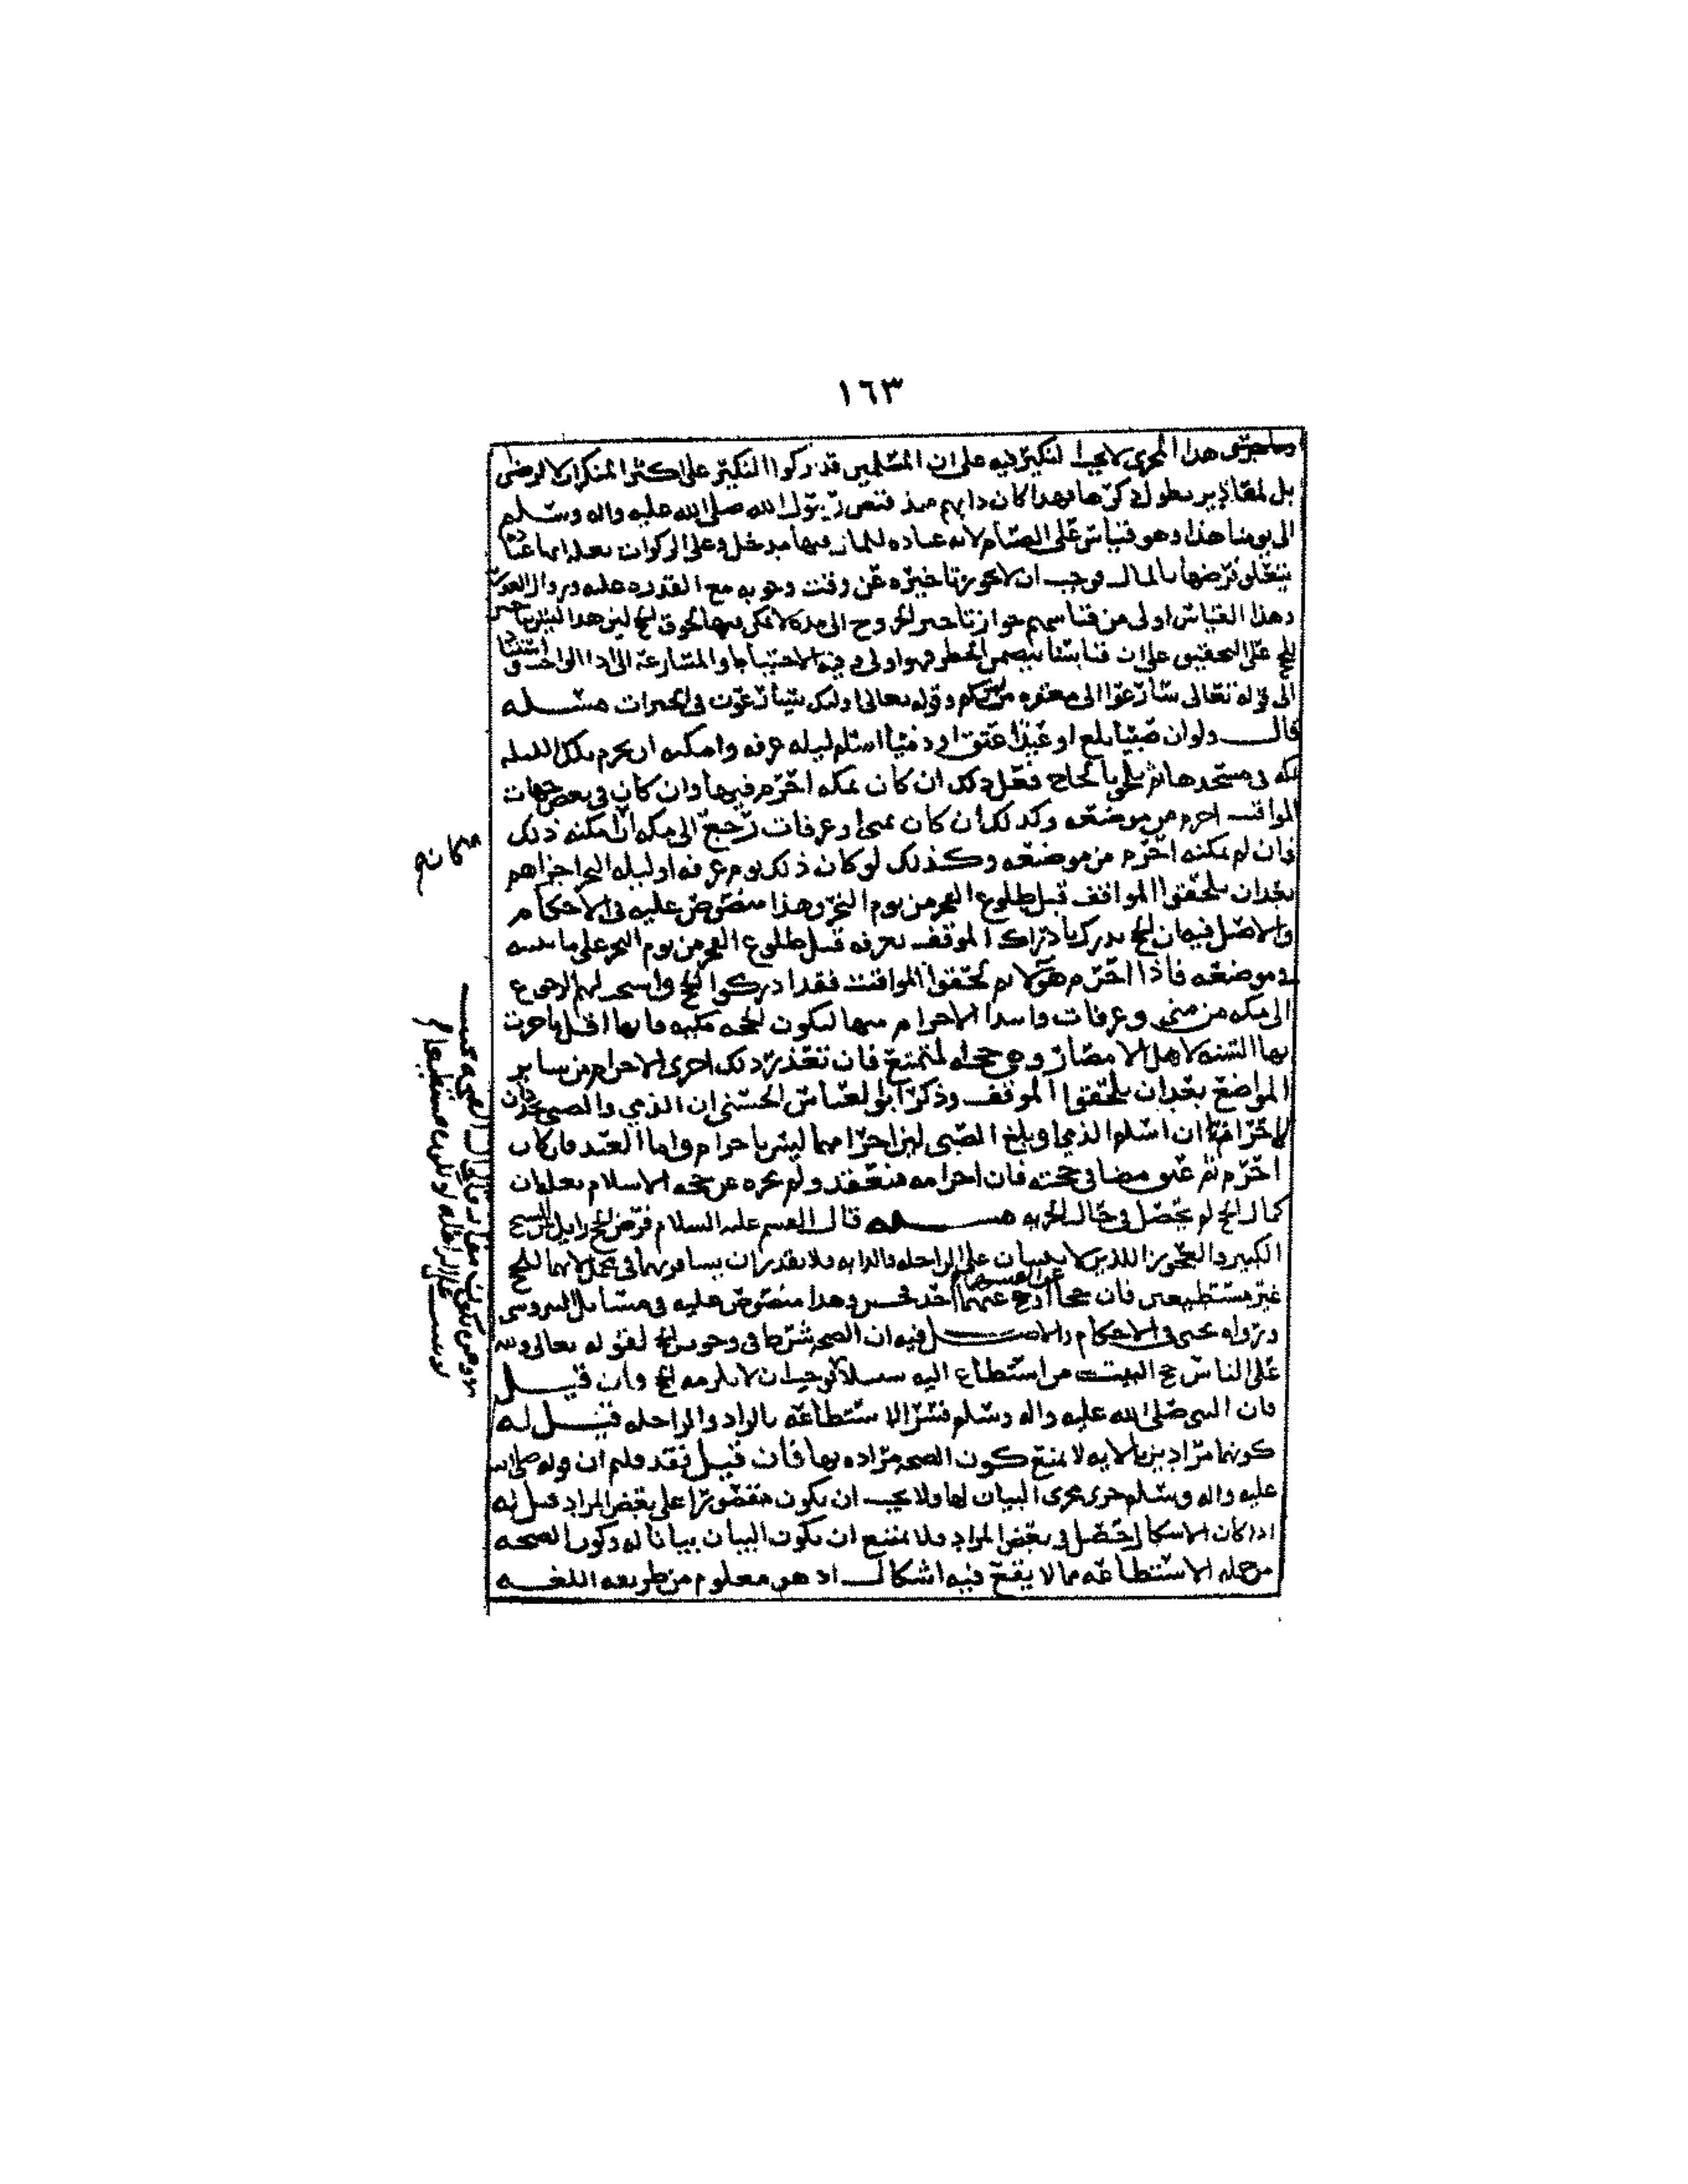 ١٦٣
وما جرى هذا المجرى لا يجب النكير فيه على ان المسلمين قد تركوا النكير على اكثر المنكرات لا لرضى
بل لمعاذير يطول ذكرها وهذا كان دابهم منذ قبض رسول الله صلى الله عليه واله وسلم
الى يومنا هذا وهو قياس على الصيام لانه عباده للمال فيها مدخل وعلى الزكوات بعله انها عباده
يتعلق فرضها بالمال فوجب ان لا يجوز تاخيره عن وقت وجوبه مع القدره عليه وزوال العذر
وهذا القياس اولى من قياسهم جواز تاخير الخروج الى مده لا يمكن فيها لحوق الحج لان هذا ليس بتاخير
للحج على التحقيق على ان قياسنا يتضمن الحظر فهو اولى وفيه الاحتياط والمسارعة الى اداء الواجب استنادا
الى قوله تعالى سارعوا الى مغفره من ربكم وقوله تعالى اولئك يسارعون في الخيرات مسله
قال ولو ان صبيا بلغ او عبدا عتق او ذميا اسلم ليله عرفه وامكنه ان يحرم تلك الليله
مكه في مسجدها ثم يلحق بالحاج فعل ذلك ان كان بمكه احرم فيها وان كان في بعض جهات
المواقيت احرم من موضعه وكذلك ان كان بمنى او عرفات رجع الى مكه ان امكنه ذلك
وان لم يمكنه احرم من موضعه وكذلك لو كان ذلك يوم عرفه او ليله النحر اجزاهم
بعد ان يلحقوا المواقف قبل طلوع الفجر من يوم النحر وهذا منصوص عليه في الاحكام
والاصل فيه ان الحج يدرك بادراك الموقف بعرفه قبل طلوع الفجر من يوم النحر على ما نبينه
في موضعه فاذا احرم هولاء ثم لحقوا المواقف فقد ادركوا الحج واستحب لهم الرجوع
الى مكه من منى وعرفات وابتدا الاحرام منها لتكون الحجه مكيه فانها اقل ما جرت
بها السنه لاهل الامصار وهي حجه المتمتع فان تعذر ذلك اجزى الاحرام من ساير
المواضع بعد ان يلحقوا الموقف وذكر ابو العباس الحسني ان الذمي والصبي يجددان
الاحرام ان اسلم الذمي او بلغ الصبي لان احرامهما ليس باحرام واما العبد فان كان
احرم ثم عتق مضا في حجته فان احرامه منعقد ولم يجزه عن حجه الاسلام بعله ان
كمال الحج لم يحصل في حال الحريه مسله قال القسم عليه السلام فرض الحج زايل عن الشيخ
الكبير والعجوز اللذين لا يثبتان على الراحله والدابه ولا يقدران يسافر بهما في محمل لانهما للحج
غير مستطيعين فان حجا او حج عنهما احد فحسن وهذا منصوص عليه في مسايل النيروسي
ورواه يحيى في الاحكام والاصل فيه ان الصحه شرط في وجوب الحج لقوله تعالى ولله
على الناس حج البيت من استطاع اليه سبيلا فوجب ان لا يلزمه الحج وان قيل
فان النبي صلى الله عليه واله وسلم فسر الاستطاعه بالزاد والراحله قيل له
كونهما مرادين بالايه لا يمنع كون الصحه مراده بها فان قيل فقد قلتم ان قوله صلى الله
عليه واله وسلم جرى مجرى البيان لها ولا يجب ان يكون مقصورا على بعض المراد قيل له
اذا كان الاشكال حصل في بعض المراد فلا يمتنع ان يكون البيان بيانا له وكون الصحه
من جمله الاستطاعه مما لا يقع فيه اشكال اذ هو معلوم من طريقه اللغه
مكانه